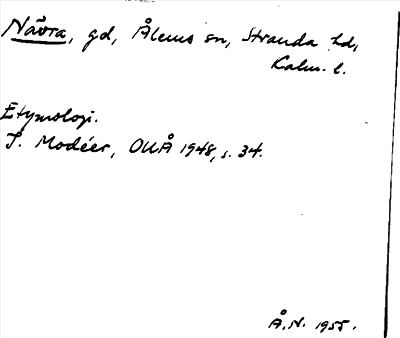 Nåvra, gd, Ålems sn, Stranda hd,
Kalm. l.
Etymologi.
I. Modéer, OUÅ 1948, s. 34.
Å.N. 1955.